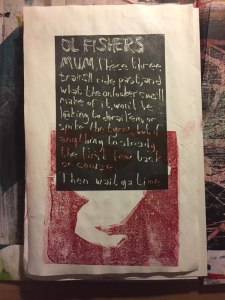 OL FISHERS
MUM. These three
trains'll ride past, and
what the onlooker small
make of it, won't be
looking to derail em, or
spite the tyres, but if
anything to steady
the first few back
or course.
Then wait, ga time